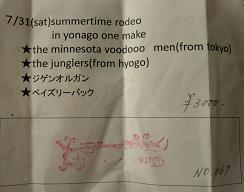 7/31(sat)summertime rodeo
in yonago one make
★the minnesota voodooo men(from tokyo)
★the junglers(from hyogo)
★ジゲンオルガン
★ペイズリーパック
¥3000-
NO.007